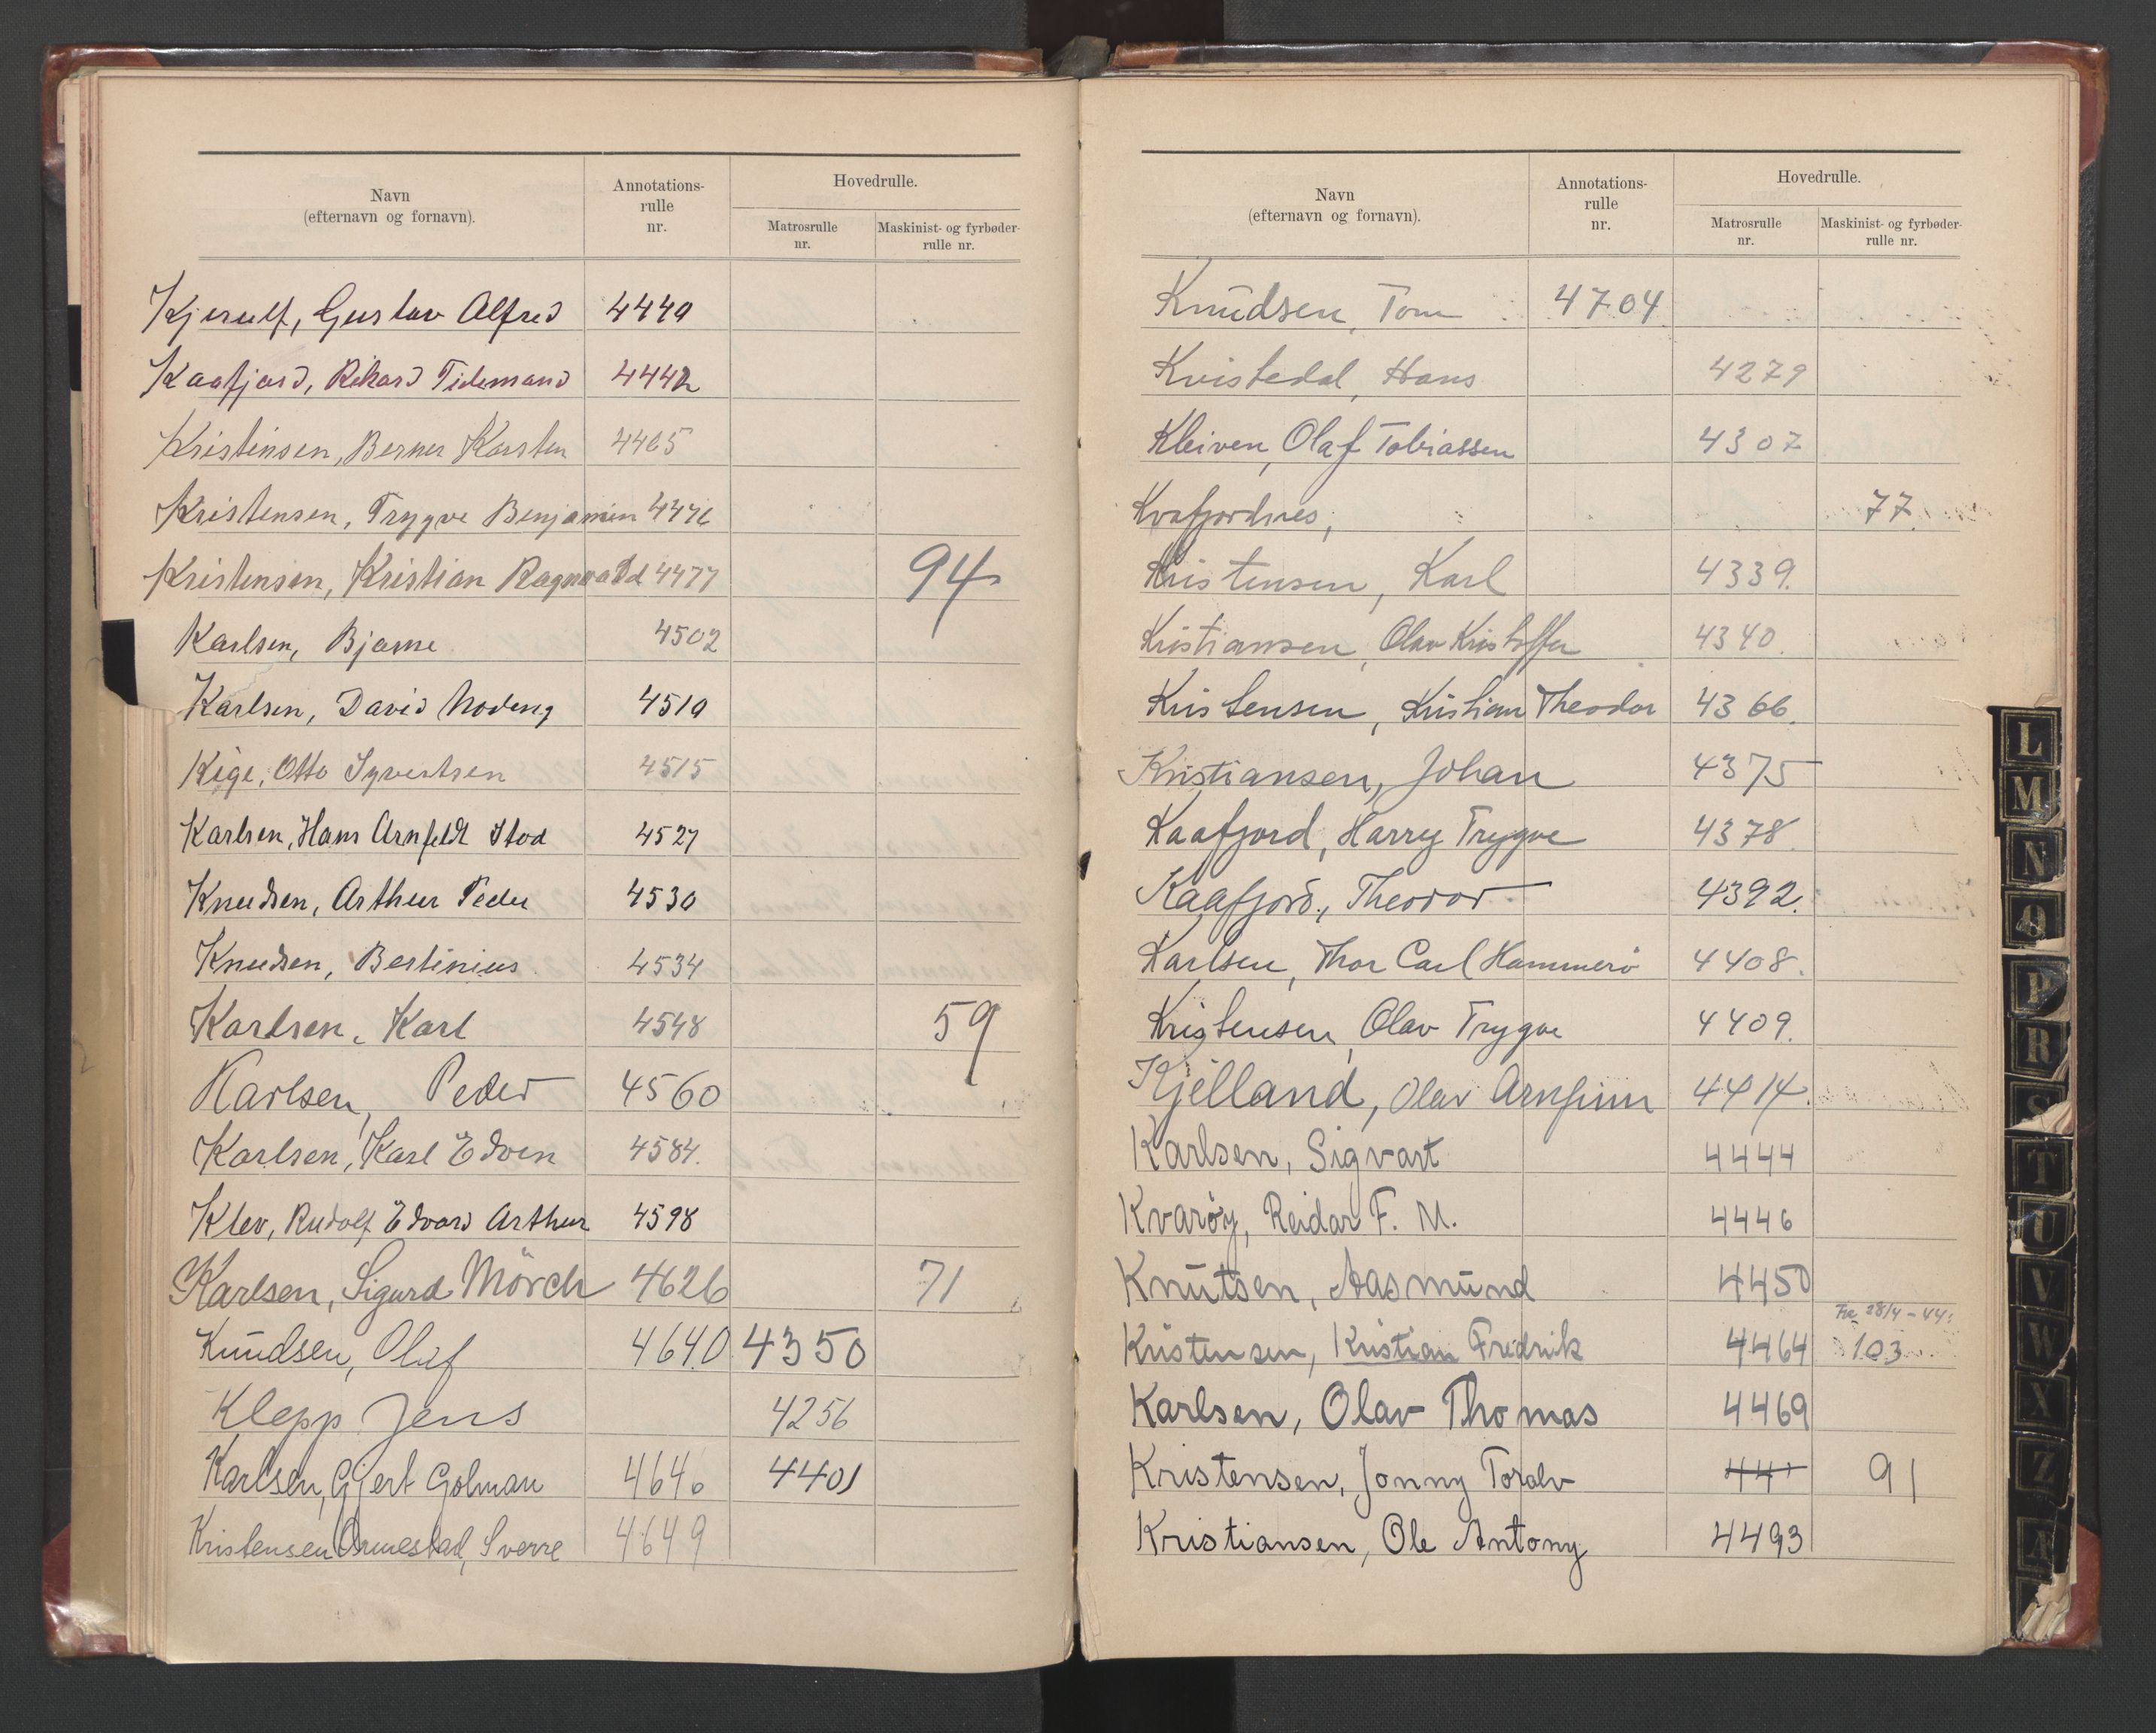 Navn
(efternavn og fornavn).
Annotations-
rulle
nr.
Hovedrulle.
Matrosrulle
nr.
Maskinist- og fyrbøder-
rulle nr.
Kjerulf, Gustav Alfred 4440
Kaafjord, Rikard Tidemand 4442
Kristensen, Berner Karsten 4465
Kristensen, Trygve Benjamin 4476
Kristensen, Kristian Ragnvald 4477 94
Karlsen, Bjarne 4502
Karlsen, David Nodeng 4510
Kige, Otto Syvertsen 4515
Karlsen, Hans Arnfeldt Stod 4527
Knudsen, Arthur Peder 4530
Knudsen, Bertinius 4534
Karlsen, Karl 4548 59
Karlsen, Peder 4560
Karlsen, Karl Edvin 4584.
Klev, Rudolf Edvard Arthur 4598
Karlsen, Sigurd Mörch 4626 71
Knudsen, Olaf 4640 4350
Klepp Jens 4256
Karlsen, Gjert Golman 4646 4401
Kristensen Ormestad, Sverre 4649
Navn
(efternavn og fornavn).
Annotations-
rulle
nr.
Hovedrulle.
Matrosrulle
nr.
Maskinist- og fyrbøder-
rulle nr.
Knudsen, Tom 4704
Kvistedal, Hans 4279
Kleiven, Olaf Tobiassen 4307
Kvafjordnes, 77
Kristensen, Karl 4339.
Kristiansen, Olav Kristoffer 4340.
Kristensen, Kristian Theodor 4366.
Kristiansen, Johan 4375
Kaafjord, Harry Trygve 4378.
Kaafjord, Theodor 4392.
Karlsen, Thor Carl Hammerö 4408.
Kristensen, Olav Trygve 4409.
Kjelland, Olav Arnfinn 4414.
Karlsen, Sigvart 4444
Kvarøy, Reidar F. M. 4446
Knutsen, Aasmund 4450
Fra 28/4-44.
Kristensen, Kristian Fredrik 4464 103
Karlsen, Olav Thomas 4469
Kristensen, Jonny Toralv 91
Kristiansen, Ole Antony 4493
L
M
N
O
P
R
S
T
U
V
W
X
Z